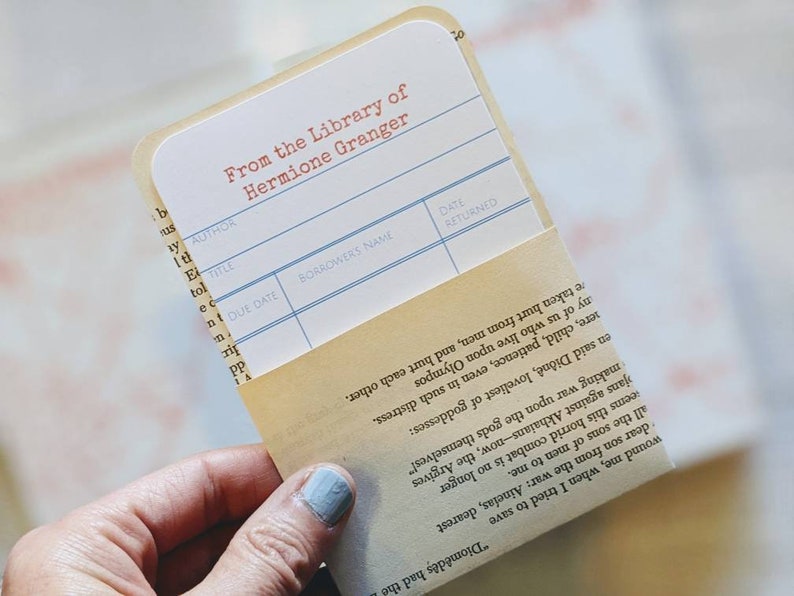 From the Library of
Hermione Granger
AUTHOR
TITLE
DUE DATE BORROWER'S NAME DATE RETURNED
"Diomêdês had the
wound me, when I tried to save
dear son from the war: Aineías, dearest
all the sons of men to me.
eems this horrid combat is no longer
ojans against Akhaians—now, the Argives
making war upon the gods themselves!"
en said Diônê, loveliest of goddesses:
here, child, patience, even in such distress.
ny of us who live upon Olympos
ve taken hurt from men, and hurt each other.